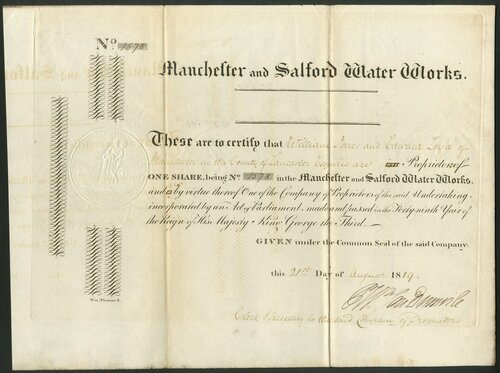 No. 1578
Manchester and Salford Water Works.
These are to certify that William Jones and Edward
Manchester in the County of Lancaster Esquires are Proprietors of
ONE SHARE, being No. 1578 in the Manchester and Salford Water Works.
and by virtue thereof One of the Company of Proprietors of the said Undertaking
incorporated by an Act of Parliament, made and passed in the Forty ninth Year of
the Reign of His Majesty King George the Third.
GIVEN under the Common Seal of the said Company.
this 21st Day of August 1819.
Clerk & Secretary to the said Company of Proprietors